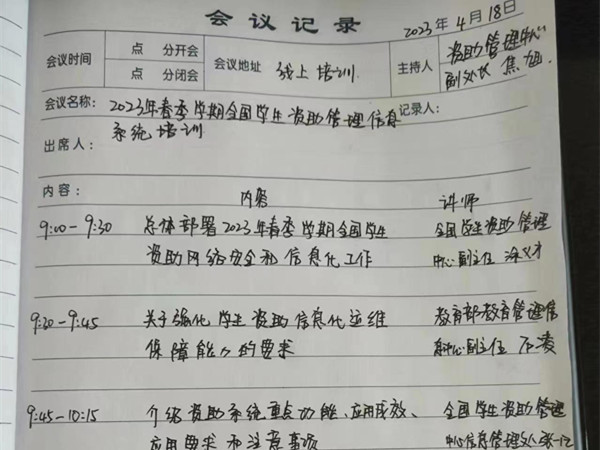 会议记录
2023年4月18日
会议时间 点 分开会 会议地址 线上培训 主持人 资助管理
点 分闭会 副处长 焦旭
会议名称: 2023年春季学期全国学生资助管理信息 记录人:
系统培训
出席人:
内容: 内容 讲师
9:00-9:30 总体部署2023年春季学期全国学生 全国学生资助管理
资助网络安全和信息化工作 中心副主任 涂义才
9:30-9:45 关于强化学生资助信息化运维 教育部教育管理信
保障能力的要求 息中心副主任
9:45-10:15 介绍资助系统重点功能、应用成效、 全国学生资助管理
应用要求和注意事项 中心信息管理处